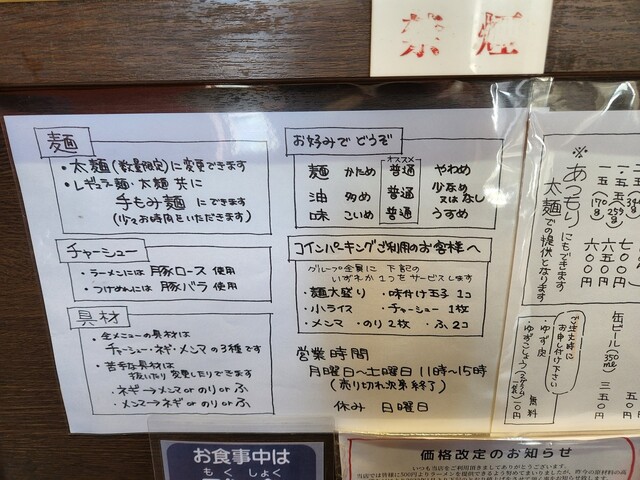 禁煙
麺
・太麺(数量限定)に変更できます
・レギュラー麺・太麺 共に
手もみ麺 にできます
(少々お時間をいただきます)
チャーシュー
・ラーメンには 豚ロース 使用
・つけめんには 豚バラ 使用
具材
・全メニューの具材は
チャーシュー・ネギ・メンマの3種です
・苦手な具材は
抜いたり変更したりできます
・ネギ→メンマ or のり or ふ
・メンマ→ネギ or のり or ふ
お好みで どうぞ
オススメ
麺 かため 普通 やわめ
油 多め 普通 少なめ又はなし
味 こいめ 普通 うすめ
コインパーキングご利用のお客様へ
グループ全員に 下記の
いずれか1つをサービスします
・麺大盛り ・味付け玉子 1コ
・小ライス ・チャーシュー 1枚
・メンマ ・のり 2枚 ・ふ 2コ
営業時間
月曜日〜土曜日 11時〜15時
(売り切れ次第終了)
休み 日曜日
※あつもりにもできます
太麺での提供となります
六〇〇円
六五〇円
七〇〇円
ご注文時に
お申し付け下さい
・ゆず皮 無料
缶ビール(350ml) 三五〇円
お食事中は
もくしょく
価格改定のお知らせ
いつも当店をご利用頂きましてありがとうございます。